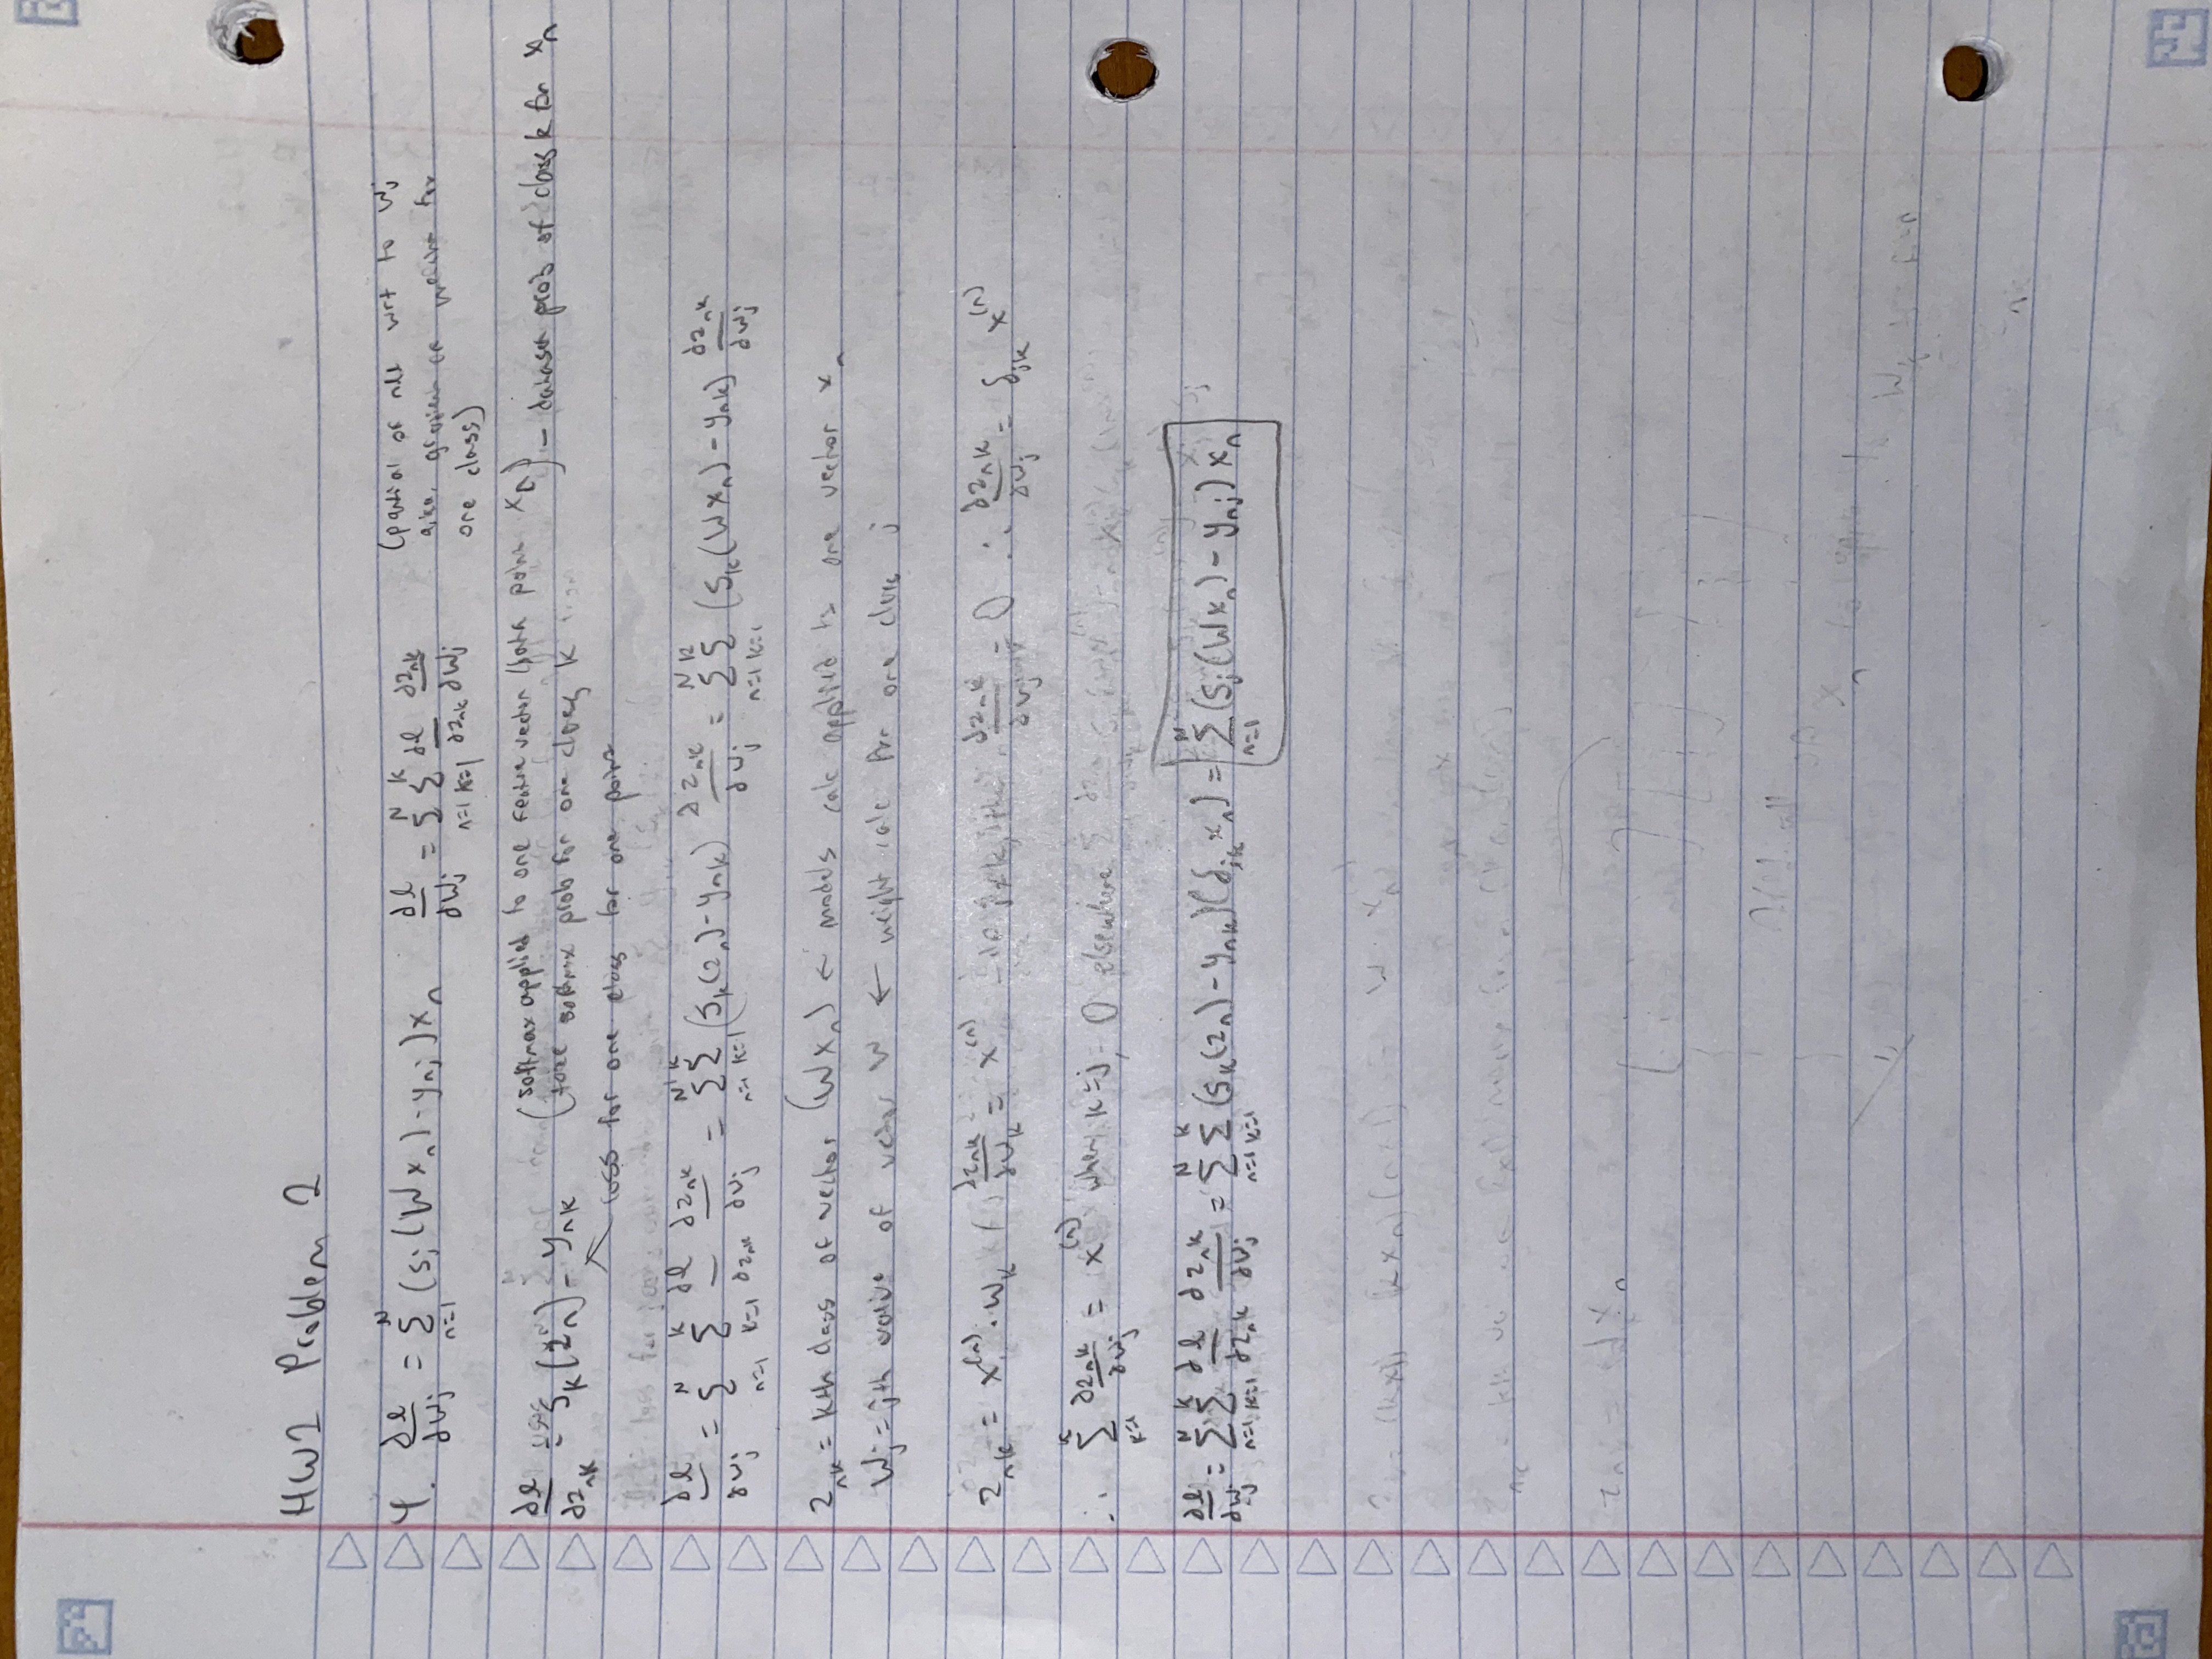 HW2 Problem 2
4. ∂l/∂wj = Σ_{n=1}^{N} (s_j(Wx_n) - y_nj)x_n    ∂l/∂wj = Σ_{n=1}^{N} Σ_{k=1}^{K} ∂l/∂z_nk ∂z_nk/∂wj    (partial of nll wrt to wj
a.k.a. gradient on weights for
one class)
∂l/∂z_nk = s_k(z_n) - y_nk    (softmax applied to one feature vector (data point x_n)
take softmax prob for one class k) - dataset prob of class k for x_n
loss for one class for one point
∂l/∂wj = Σ_{n=1}^{N} Σ_{k=1}^{K} ∂l/∂z_nk ∂z_nk/∂wj = Σ_{n=1}^{N} Σ_{k=1}^{K} (s_k(z_n) - y_nk) ∂z_nk/∂wj = Σ_{n=1}^{N} Σ_{k=1}^{K} (s_k(Wx_n) - y_nk) ∂z_nk/∂wj
z_nk = kth class of vector (Wx_n) ← models calc applied to one vector x_n
wj = jth value of vector W ← weight calc for one class j
z_nk = x^(n) · w_k, ∂z_nk/∂w_k = x^(n) if j≠k, then ∂z_nk/∂wj = 0 ∴ ∂z_nk/∂wj = δ_jk x^(n)
∴ Σ_{k=1}^{K} ∂z_nk/∂wj = x^(n) when k=j, 0 elsewhere
∂l/∂wj = Σ_{n=1}^{N} Σ_{k=1}^{K} ∂l/∂z_nk ∂z_nk/∂wj = Σ_{n=1}^{N} Σ_{k=1}^{K} (s_k(z_n) - y_nk)(δ_jk x_n) = Σ_{n=1}^{N} (s_j(Wx_n) - y_nj) x_n